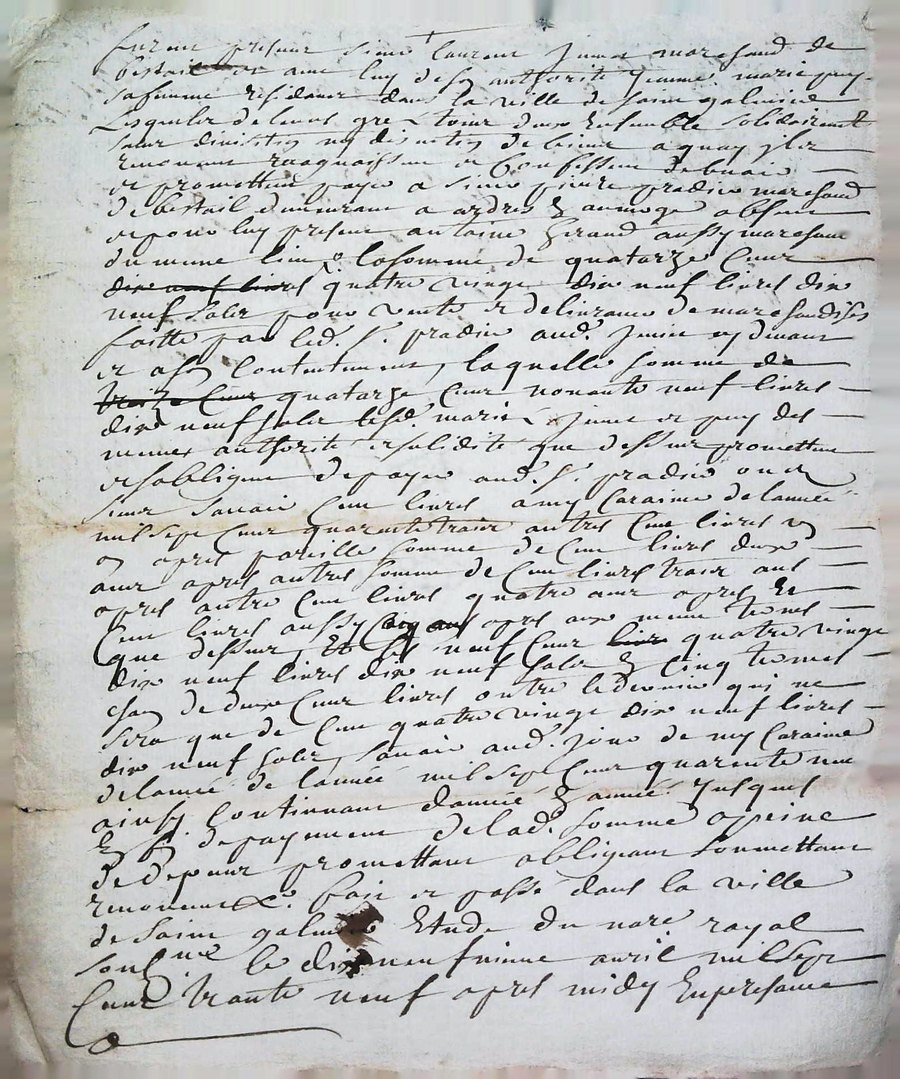 furent presents sieur laurent Junet marchand de
bestail et avec luy de son authorite Jeanne marie puy
sa femme residants dans la ville de saint galmier
Lesquels de leurs gré tous deux ensemble solidairement
sans division ny discution de biens a quoy ils
renoncent recognaissent et Confessent debvoir
et promettent payer a sieur pierre pradier marchand
de bestail demeurant a absent
et pour luy present antoine giraud aussy marchand
du meme lieu la somme de quatorze Cent
dix neuf livres quatre vingt dix neuf livres dix
neuf sols pour vente et delivrance de marchandises
faitte par led. Sr. pradier aud. Junet cy devant
et a son Contentement, laquelle somme de
treize Cent quatorze Cent nonante neuf livres
dix neuf sols lesd. mariés Junet et puy des
memes authorité et solidité que dessus promettent
et sobligent de payer aud. Sr. pradier
savoir Cent livres a my Caraime de lannée
mil sept Cent quarente trois autres Cent livres un
an apres pareille somme de Cent livres deux
ans apres autres somme de Cent livres trois ans
apres autre Cent livres quatre ans apres
Cent livres aussy Cinq ans apres aux meme termes
que dessus, Et les neuf Cent quatre vingt
dix neuf livres dix neuf sols en Cinq termes
chacun de deux Cent livres outre le dernier qui ne
sera que de Cent quatre vingt dix neuf livres
dix neuf sols, savoir aud. jour de my Caraime
de lannée de lannée mil sept Cent quarente neuf
ainsy Continuant dannée en année jusques
en fin de payement de lad. somme a peine
de depens promettant obligeant soumettant
renonceant &c. fait et passé dans la ville
de saint galmier Etude du nore royal
soussigné le dix neufvieme avril mil sept
Cent trante neuf apres midy En presance